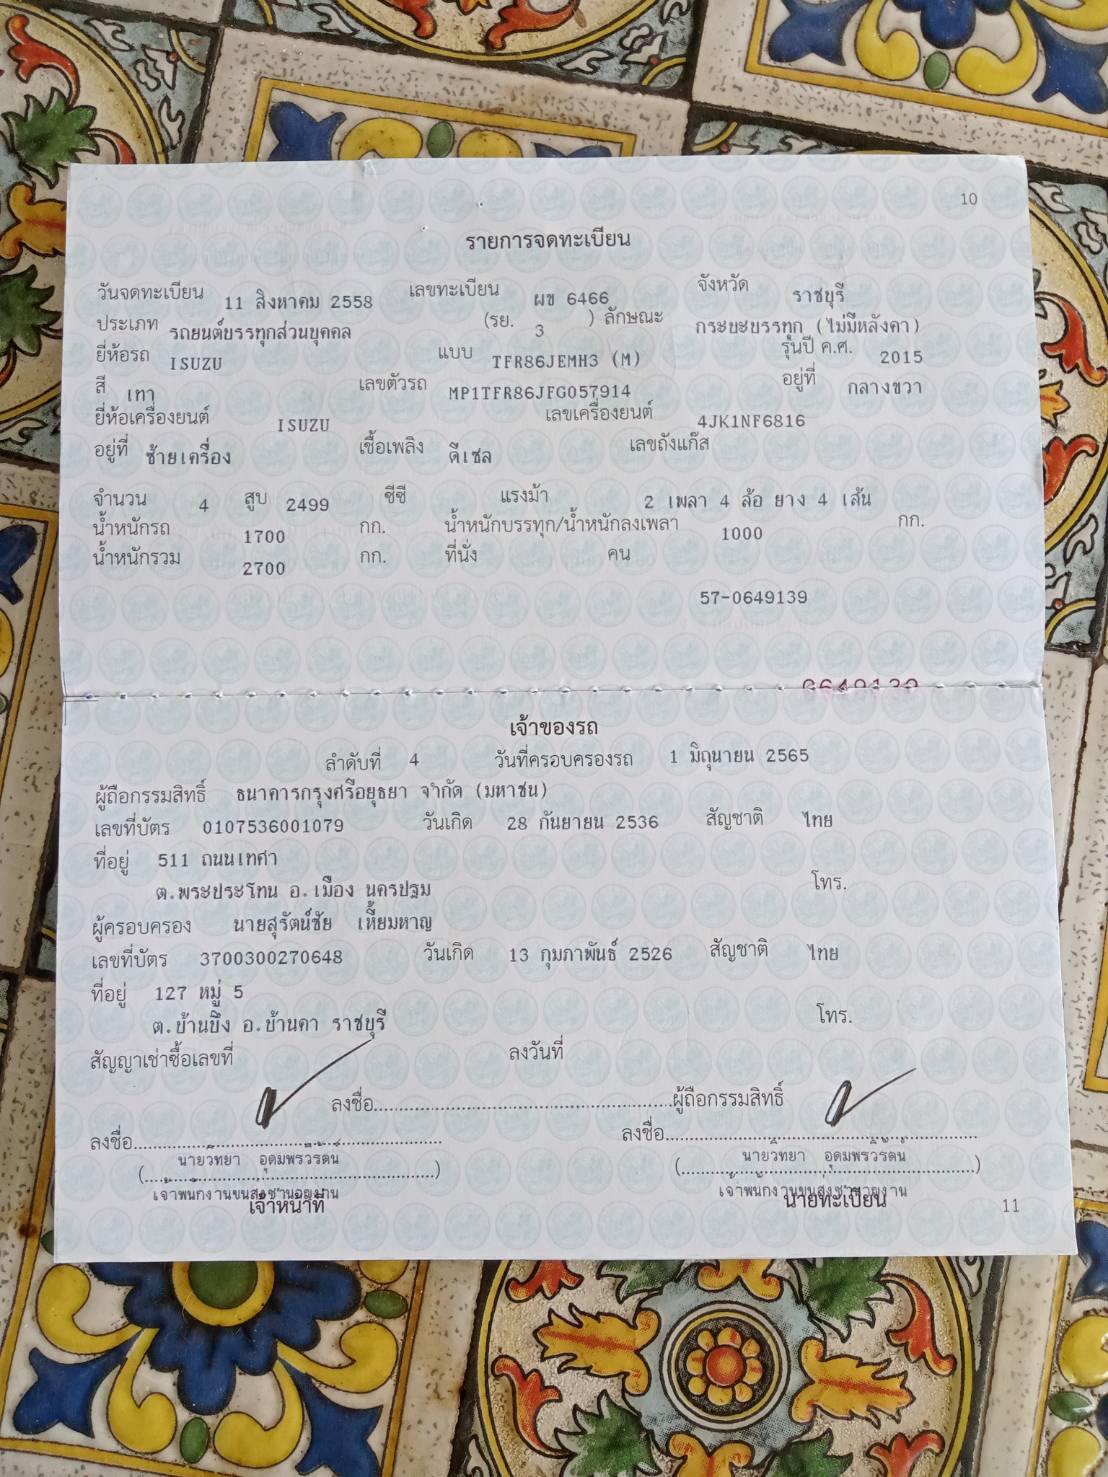 10
รายการจดทะเบียน
วันจดทะเบียน 11 สิงหาคม 2558 เลขทะเบียน ผข 6466 จังหวัด ราชบุรี
ประเภท รถยนต์บรรทุกส่วนบุคคล (รย. 3 ) ลักษณะ กระบะบรรทุก (ไม่มีหลังคา)
ยี่ห้อรถ ISUZU แบบ TFR86JEMH3 (M) รุ่นปี ค.ศ. 2015
สี เทา เลขตัวรถ MP1TFR86JFG057914 อยู่ที่ กลางขวา
ยี่ห้อเครื่องยนต์ ISUZU เลขเครื่องยนต์ 4JK1NF6816
อยู่ที่ ซ้ายเครื่อง เชื้อเพลิง ดีเซล เลขถังแก๊ส
จำนวน 4 สูบ 2499 ซีซี แรงม้า 2 เพลา 4 ล้อ ยาง 4 เส้น
น้ำหนักรถ 1700 กก. น้ำหนักบรรทุก/น้ำหนักลงเพลา 1000 กก.
น้ำหนักรวม 2700 กก. ที่นั่ง คน
57-0649139
เจ้าของรถ
ลำดับที่ 4 วันที่ครอบครองรถ 1 มิถุนายน 2565
ผู้ถือกรรมสิทธิ์ ธนาคารกรุงศรีอยุธยา จำกัด (มหาชน)
เลขที่บัตร 0107536001079 วันเกิด 28 กันยายน 2536 สัญชาติ ไทย
ที่อยู่ 511 ถนนเทศา
ต.พระประโทน อ.เมือง นครปฐม โทร.
ผู้ครอบครอง นายสุรัตน์ชัย เหี้ยมหาญ
เลขที่บัตร 3700300270648 วันเกิด 13 กุมภาพันธ์ 2526 สัญชาติ ไทย
ที่อยู่ 127 หมู่ 5
ต.บ้านบึง อ.บ้านคา ราชบุรี โทร.
สัญญาเช่าซื้อเลขที่ ลงวันที่
ลงชื่อ.....................................................ผู้ถือกรรมสิทธิ์
ลงชื่อ..................................................... ลงชื่อ.....................................................
นายวิทยา อุดมพรวิรัตน์ นายวิทยา อุดมพรวิรัตน์
(.....................................................) (.....................................................)
เจ้าพนักงานขนส่งชำนาญงาน เจ้าพนักงานขนส่งชำนาญงาน
เจ้าหน้าที่ นายทะเบียน
11